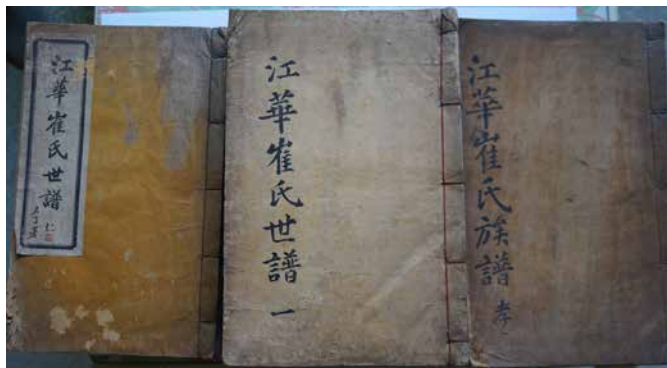 江華崔氏世譜
仁
江華崔氏世譜 一
江華崔氏族譜 孝